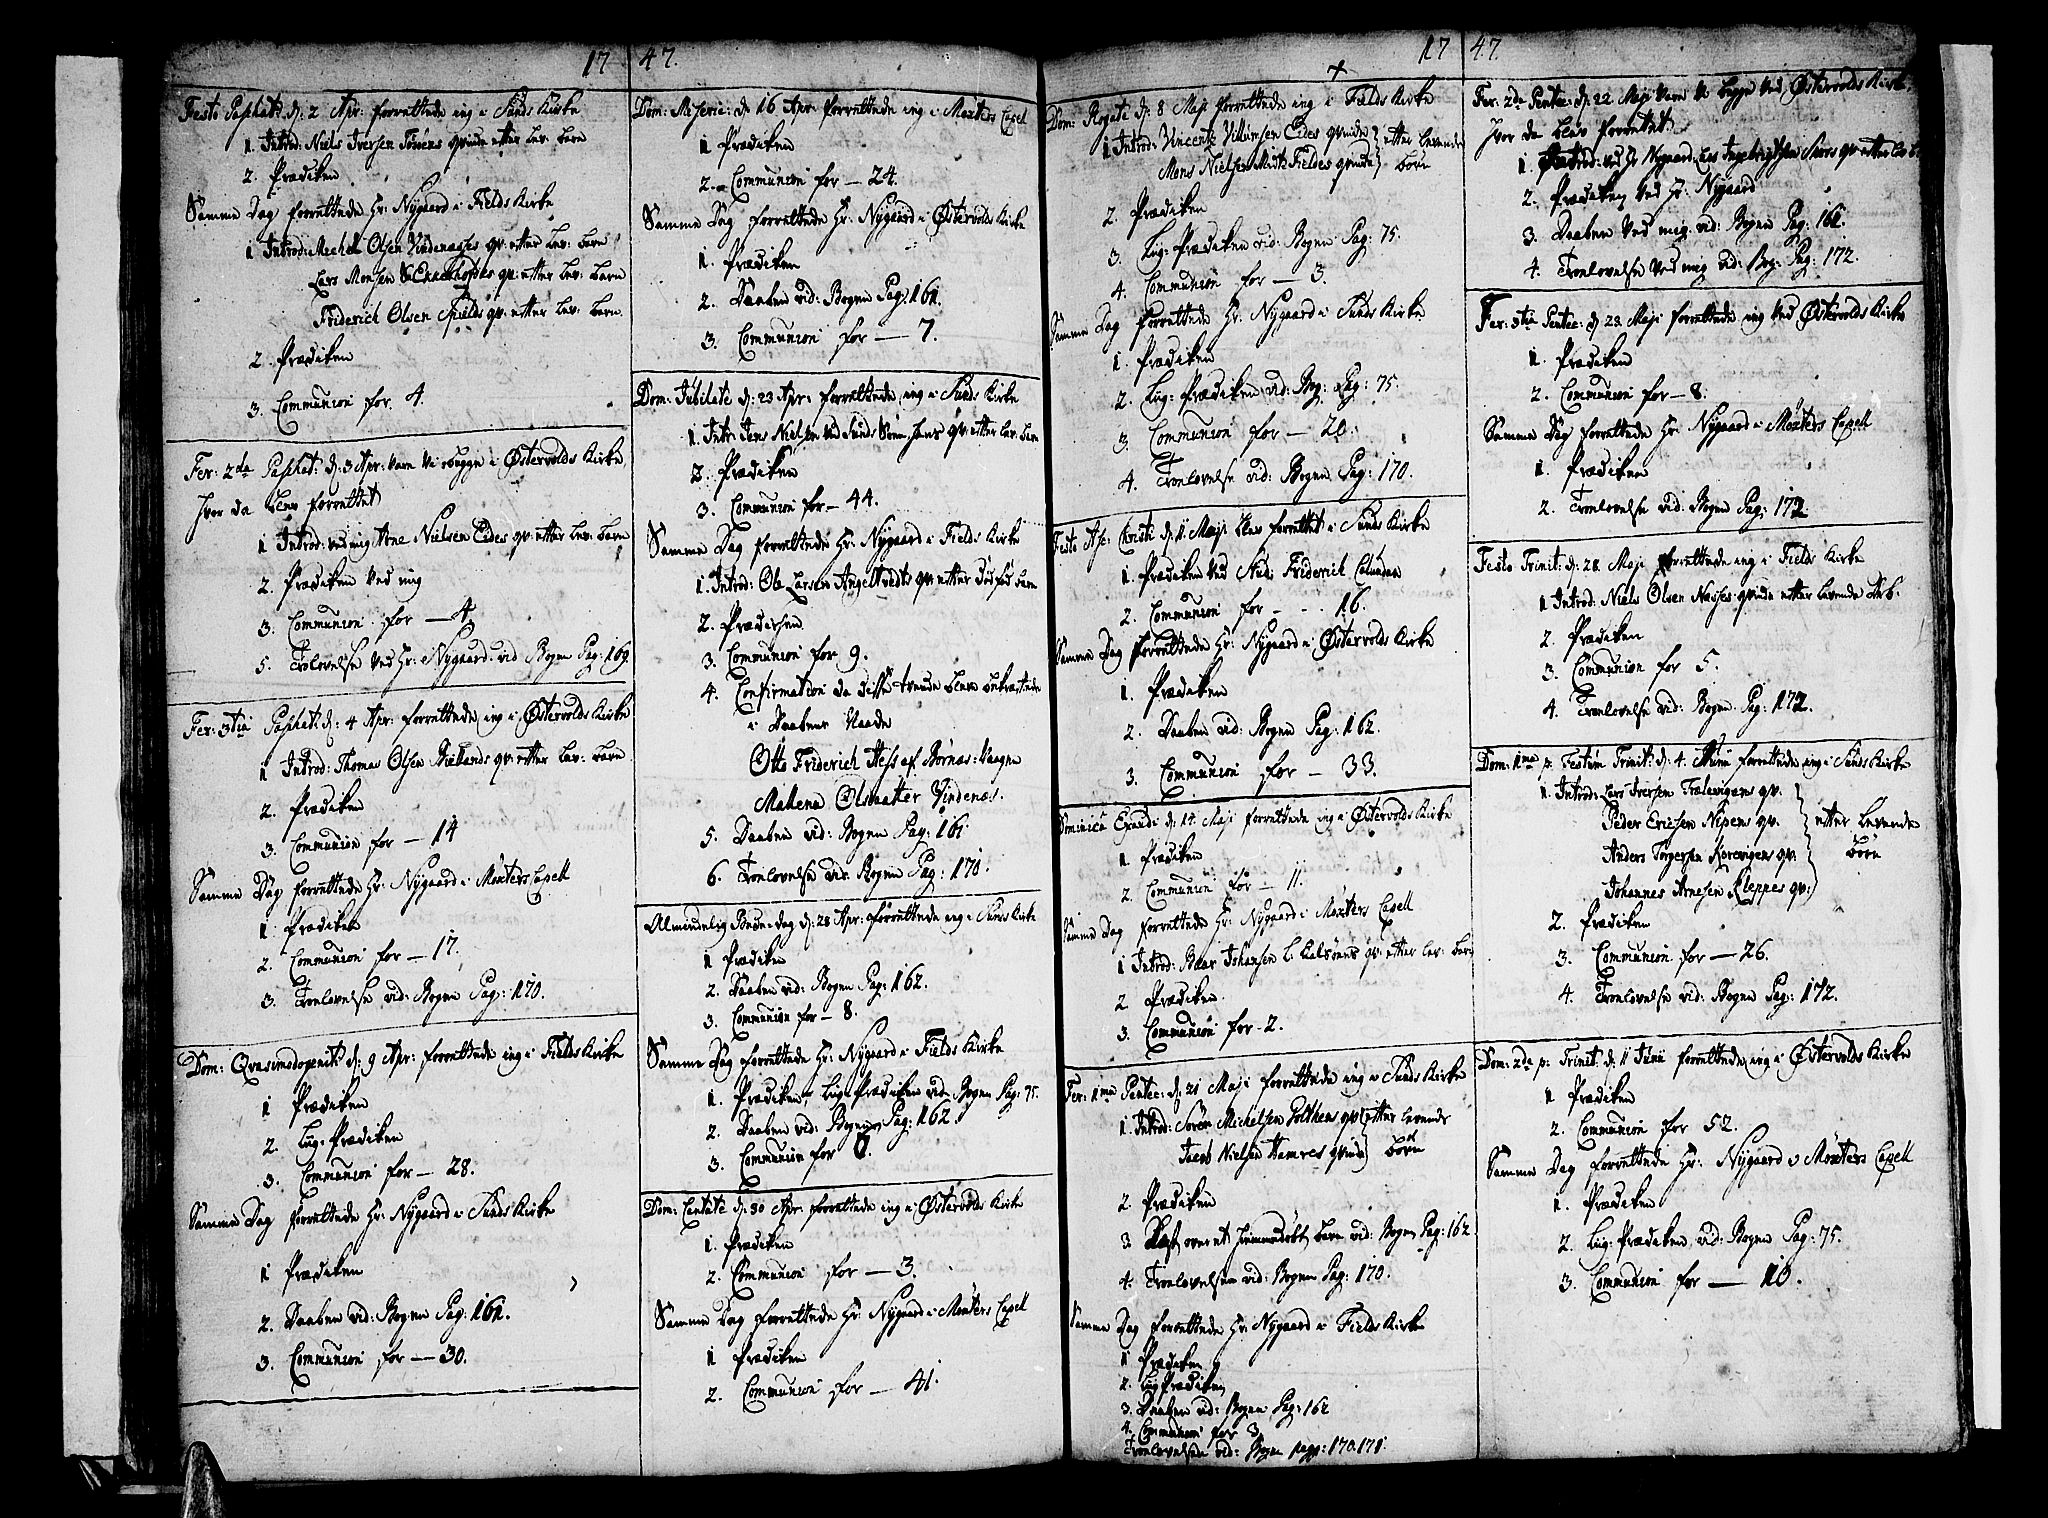 17 47.
Festo Paschat: d: 2 Apr: forrettede ieg i Sunds Kirke
1. Introd: Niels Iversen Tømens qvinde etter lev: barn
2. Prædiken
Samme Dag forrettede Hr: Nygaard i Fields Kirke
1 Introd: Mechel Olsen Vindenæses qv: etter lev: barn
Lars Monsen qv: etter lev: barn
Friderich Olsen Spilds qv: etter lev: barn
2. Prædiken
3. Communion for 4.
Fer: 2da Paschat: d: 3 Apr: vare vi begge i Østervolds Kirke
hvor da blev forrettet
1 Introd: ved mig Arne Nielsen Eides qv: etter lev: barn
2. Prædiken ved mig
3. Communion for — 4.
5. Trolovelse ved Hr: Nygaard vid Bogen Pag: 169
Fer: 3tia Paschat: d: 4 Apr: forrettede ieg i Østervolds Kirke
1 Introd: Thomas Olsen Bielands qv: etter lev: barn
2. Prædiken
3. Communion for — 14
Samme Dag forrettede Hr: Nygaard i Møxters Capell
1. Prædiken
2. Communion for — 17.
3. Troelovelse vid: Bogen Pag: 170.
Dom: Qvasimodogenit: d: 9 Apr: forrettede ieg i Fields Kirke
1 Prædiken
2. Liig: Prædiken
3. Communion for — 28.
Samme Dag forrettede Hr: Nygaard i Sunds Kirke
1 Prædiken
2. Daaben vid: Bogen Pag: 161.
3. Communion for — 30.
Dom: Miseric: d: 16 Apr: forrettede ieg i Møxters Capel
1 Prædiken
2. Communion for — 24.
Samme Dag forrettede Hr: Nygaard i Østervolds Kirke
1. Prædiken
2. Daaben vid: Bogen Pag: 161.
3. Communion for — 7.
Dom: Jubilate d: 23 Apr: forrettede ieg i Sunds Kirke
1. Intr: Jens Nielsen ved Sunds qv: etter lev: barn
2. Prædiken
3. Communion for — 44.
Samme Dag forrettede Hr: Nygaard i Fields Kirke
1. Introd: Ole Larsen Angeltvedts qv: etter Dødfød barn
2. Prædiken
3. Communion for 9.
4. Confirmation da disse tvende bleve bekræftede
i Daabens Naade
Otto Friderich Hess af Børnæs: Vaagne
Maltena Olsdaatter Vindenæs.
5. Daaben vid: Bogen Pag: 161
6. Troelovelse vid: Bogen Pag: 170.
Almindelig Bede-dag d: 28 Apr: forrettede ieg i Sunds Kirke
1 Prædiken
2. Daaben vid: Bogen Pag: 162.
3. Communion for — 8.
Samme Dag forrettede Hr: Nygaard i Fields Kirke
1. Prædiken Liig: Prædiken vid: Bogen Pag: 75.
2. Daaben vid: Bogen Pag: 162
3. Communion for
Dom: Cantate d: 30 Apr. forrettede ieg i Østervolds Kirke
1. Prædiken
2. Communion for — 3.
Samme Dag forrettede Hr: Nygaard i Møxters Capell
1 Prædiken
2. Communion for — 41.
17 47.
Dom: Rogate d: 8 Maji forrettede ieg i Fields Kirke
1 Introd: Vincents Villumsen Eides qvinde } etter levende
Mons Nielsen Midt Fieldes qvinde } børn
2. Prædiken
3. Liig: Prædiken vid: Bogen Pag: 75.
4. Communion for — 3.
Samme Dag forrettede Hr: Nygaard i Sunds Kirke
1. Prædiken
2. Liig: Prædiken vid: Bog: Pag: 75.
3. Communion for — 20.
4. Troelovelse vid: Bogen Pag: 170.
Festo Asc: Christi d: 11. Maji blev forrettet i Sunds Kirke
1. Prædiken ved Stud: Friderich Calundan
2. Communion for - - 16.
Samme Dag forrettede Hr: Nygaard i Østervolds Kirke
1. Prædiken
2. Daaben vid: Bogen Pag: 162.
3. Communion for — 33.
Dominica Exaudi d: 14. Maji forrettede ieg i Østervolds Kirke
1 Prædiken
2. Communion for — 11.
Samme Dag forrettede Hr: Nygaard i Møxters Capell
1 Introd: Baar Johansen L: Kalsønes qv: etter lev: barn
2 Prædiken.
3. Communion for - 2.
Fer: 1ma Pentec: d: 21 Maji forrettede ieg i Sunds Kirke
1. Introd: Sören Michelsen Polthens qv: } etter levende
Jacob Nielsen Hamres qvinde } børn
2. Prædiken
3. Læst over et hiemmedøbt barn vid: Bogen Pag: 162
4. Troelovelsen vid: Bogen Pag: 170.
Samme Dag forrettede Hr: Nygaard i Fields Kirke
1 Prædiken
2. Liig Prædiken
3. Daaben vid: Bogen Pag: 162
4. Communion for 3
Troelovelsen vid: Bogen pagg: 170. 171.
Fer: 2da Pentec: d: 22 Maji vare vi begge ved Østervolds Kirke,
hvor da blev forrettet
1. Introd: ved Hr Nygaard Lars Ingebrigtsen qv: etter lev b:
2. Prædiken ved Hr: Nygaard
3. Daaben ved mig vid: Bogen Pag: 162.
4. Troelovelse ved mig vid: Bog: Pag: 172.
Fer: 3tia Pentec: d: 23 Maji forrettede ieg ved Østervolds Kirke
1. Prædiken
2. Communion for — 8.
Samme Dag forrettede Hr: Nygaard i Møxters Capell
1. Prædiken
2. Troelovelse vid: Bogen Pag: 172.
Festo Trinit: d: 28. Maji forrettede ieg i Fields Kirke
1 Introd: Niels Olsen Næsses qvinde etter levende b.
2. Prædiken
3. Communion for 5.
4. Troelovelse vid: Bogen Pag: 172.
Dom: 1ma p. Festum Trinit: d: 4. Junii forrettede ieg i Sunds Kirke
1. Introd: Lars Iversen Trælevigens qv.
Peder Ericksen Nipens qv. } etter levende
Anders Torgersen Korevigens qv. } børn
Johannes Arnesen Kleppes qv:
2. Prædiken
3. Communion for — 26.
4. Troelovelse vid: Bogen Pag: 172.
Dom: 2da p: Trinit: d: 11 Juni forrettede ieg i Østervolds Kirke
1. Prædiken
2. Communion for 52.
Samme Dag forrettede Hr: Nygaard i Møxters Capell
1. Prædiken
2. Liig: Prædiken vid: Bogen Pag: 75.
3. Communion for — 10.